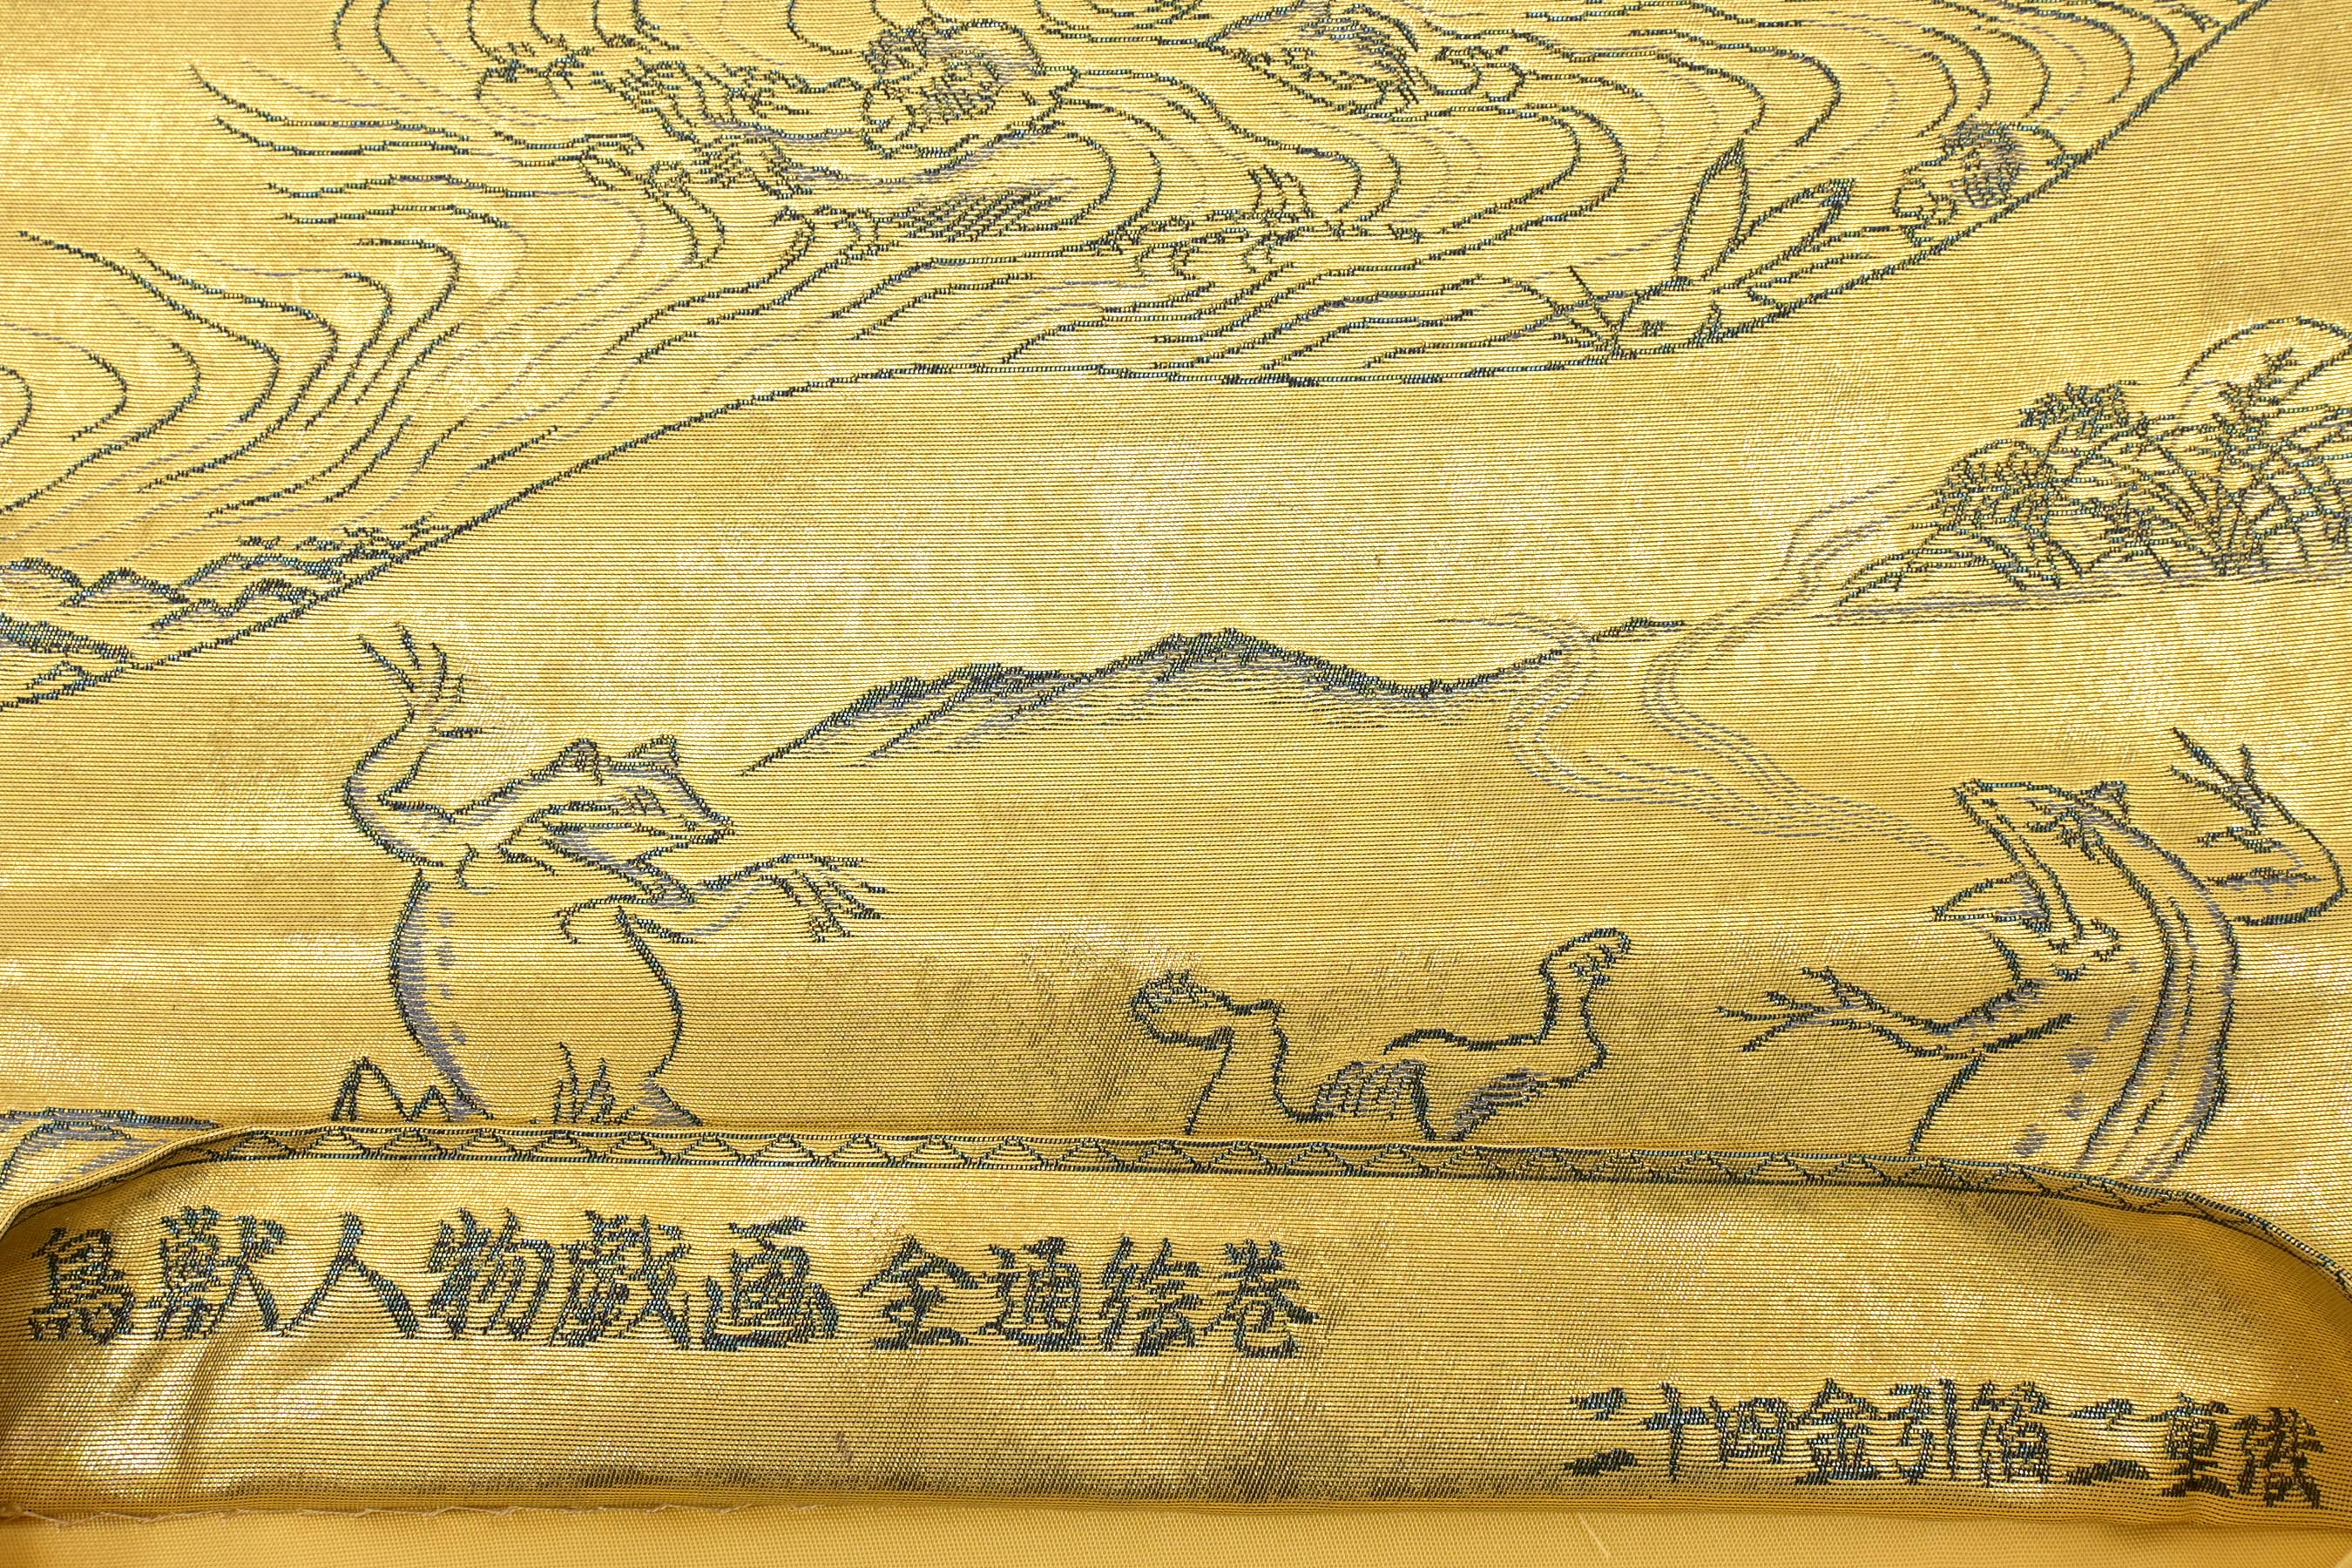 鳥獣人物戯画 全通絵巻
二十四金引箔二重織